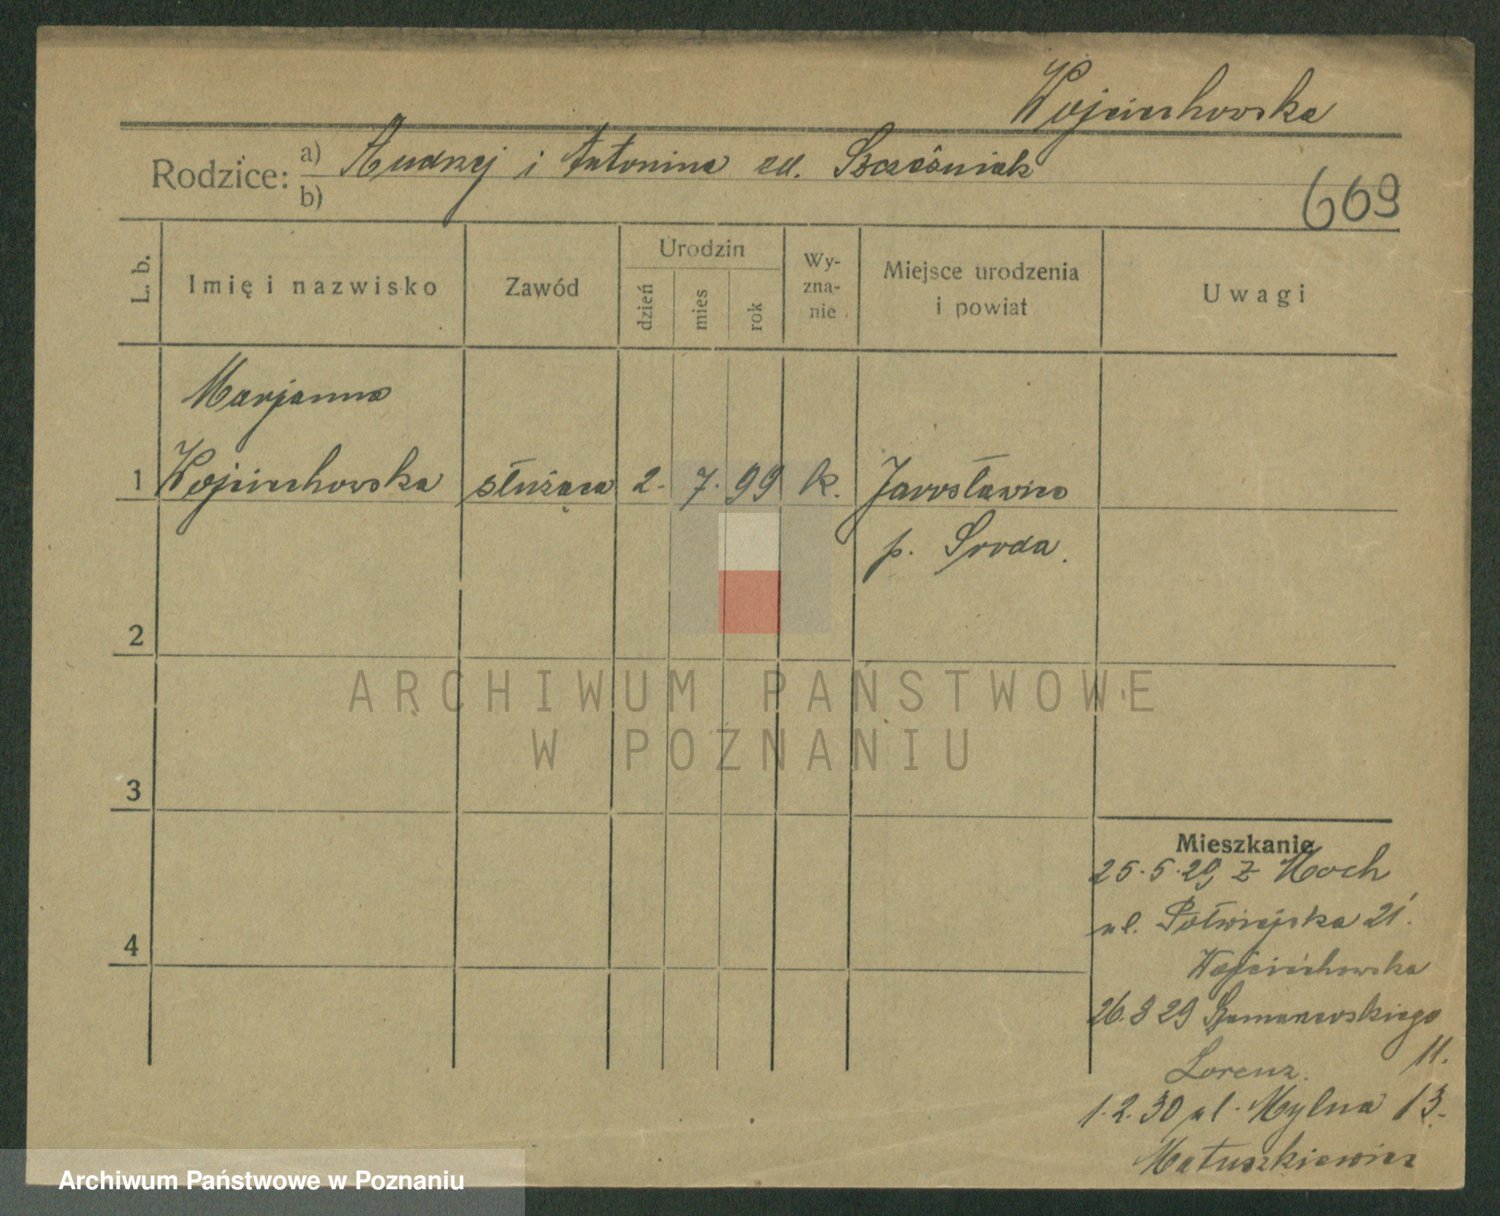 Wojciechowska
Rodzice: a) Andrzej i Antonina zd. Szcześniak
b)
669
L. b.
Imię i nazwisko
Zawód
Urodzin
dzień
mies
rok
Wy-
zna-
nie
Miejsce urodzenia
i powiat
Uwagi
Marjanna
1 Wojciechowska służąca 2. 7. 99 k. Jarosławiec
p. Sroda.
2
ARCHIWUM PAŃSTWOWE
W POZNANIU
3
Mieszkanie
25.5.29 z Koch
4
ul. Półwiejska 21.
Wojciechowska
26.8 29 Romanowskiego
11.
Lorenz.
1.2.30 ul. Mylna 13.
Matuszkiewicz
Archiwum Państwowe w Poznaniu